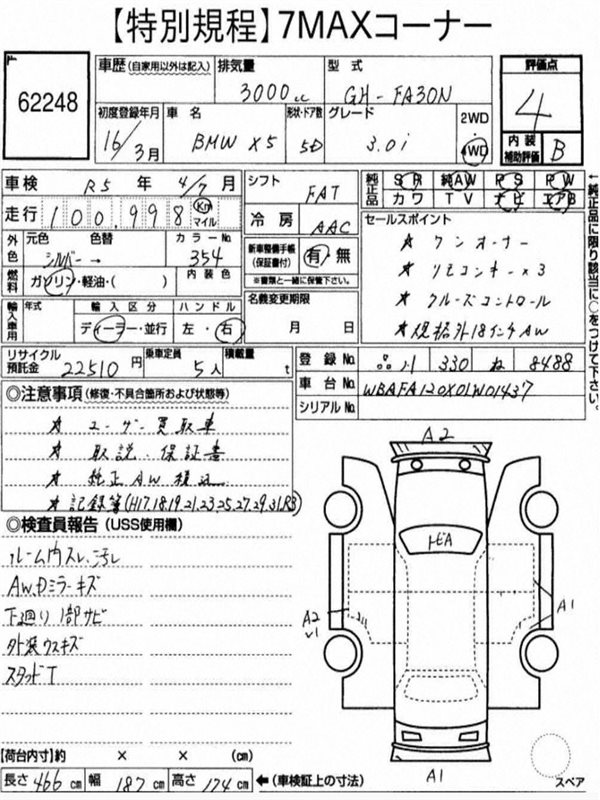 【特別規程】7MAXコーナー
62248
車歴 (自家用以外は記入) 排気量 3000cc 型式 GH-FA30N
評価点 4
内装補助評価 B
初度登録年月 16/3月 車名 BMW X5 形状・ドア数 5D グレード 3.0i 2WD 4WD
車検 R5年 4/7月 シフト FAT
走行 100,998 Km マイル 冷房 AAC
純正品 SR 純AW PS PW
カワ TV ナビ エアB
←純正品に限り該当に○をつけて下さい。
セールスポイント
★ ワンオーナー
★ リモコンキー×3
★ クルーズコントロール
★ 規格外18インチAW
外色 元色 シルバー→ 色替 カラーNo. 354
新車整備手帳(保証書付) 有・無
※書類と一緒に保管下さい。
燃料 ガソリン・軽油・( ) 内装色
名義変更期限 月 日
輸入車用 年式 輸入区分 ディーラー・並行 ハンドル 左・右
リサイクル預託金 22510円 乗車定員 5人 積載量 t
登録No. 330 ね 8488
車台No. WBAFA120X01W01437
シリアルNo.
◎注意事項 (修復・不具合箇所および状態等)
★ ユーザー買取車
★ 取説・保証書
★ 純正AW積込
★ 記録簿(H17.18.19.21.23.25.27.29.31.R3)
◎検査員報告 (USS使用欄)
ルーム内スレ、汚レ
AW、Dミラーキズ
下廻り1部サビ
外装ウスキズ
スタッドT
A2
トビA
A2
A1
A1
スペア
【荷台内寸】約 × × (cm)
長さ 466 cm 幅 187 cm 高さ 174 cm ←(車検証上の寸法)